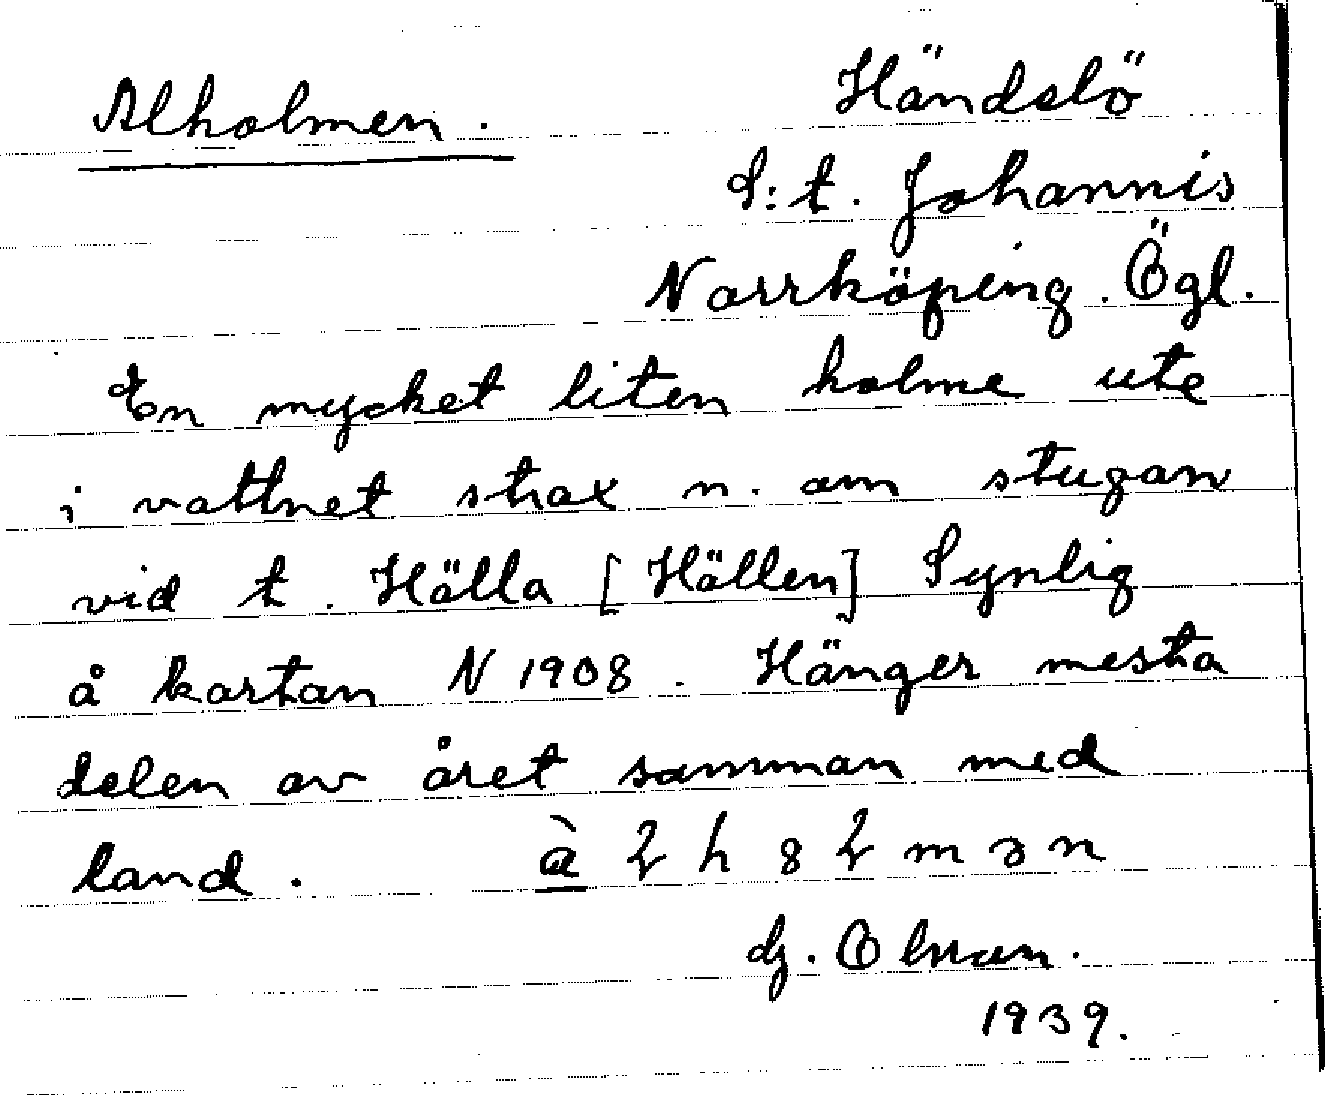 Alholmen.
Händslö
S:t. Johannis
Norrköping. Ögl.
En mycket liten holme ute
i vattnet strax n. om stugan
vid t. Hälla [Hällen] Synlig
å kartan N 1908. Hänger mesta
delen av året samman med
land.
1939.